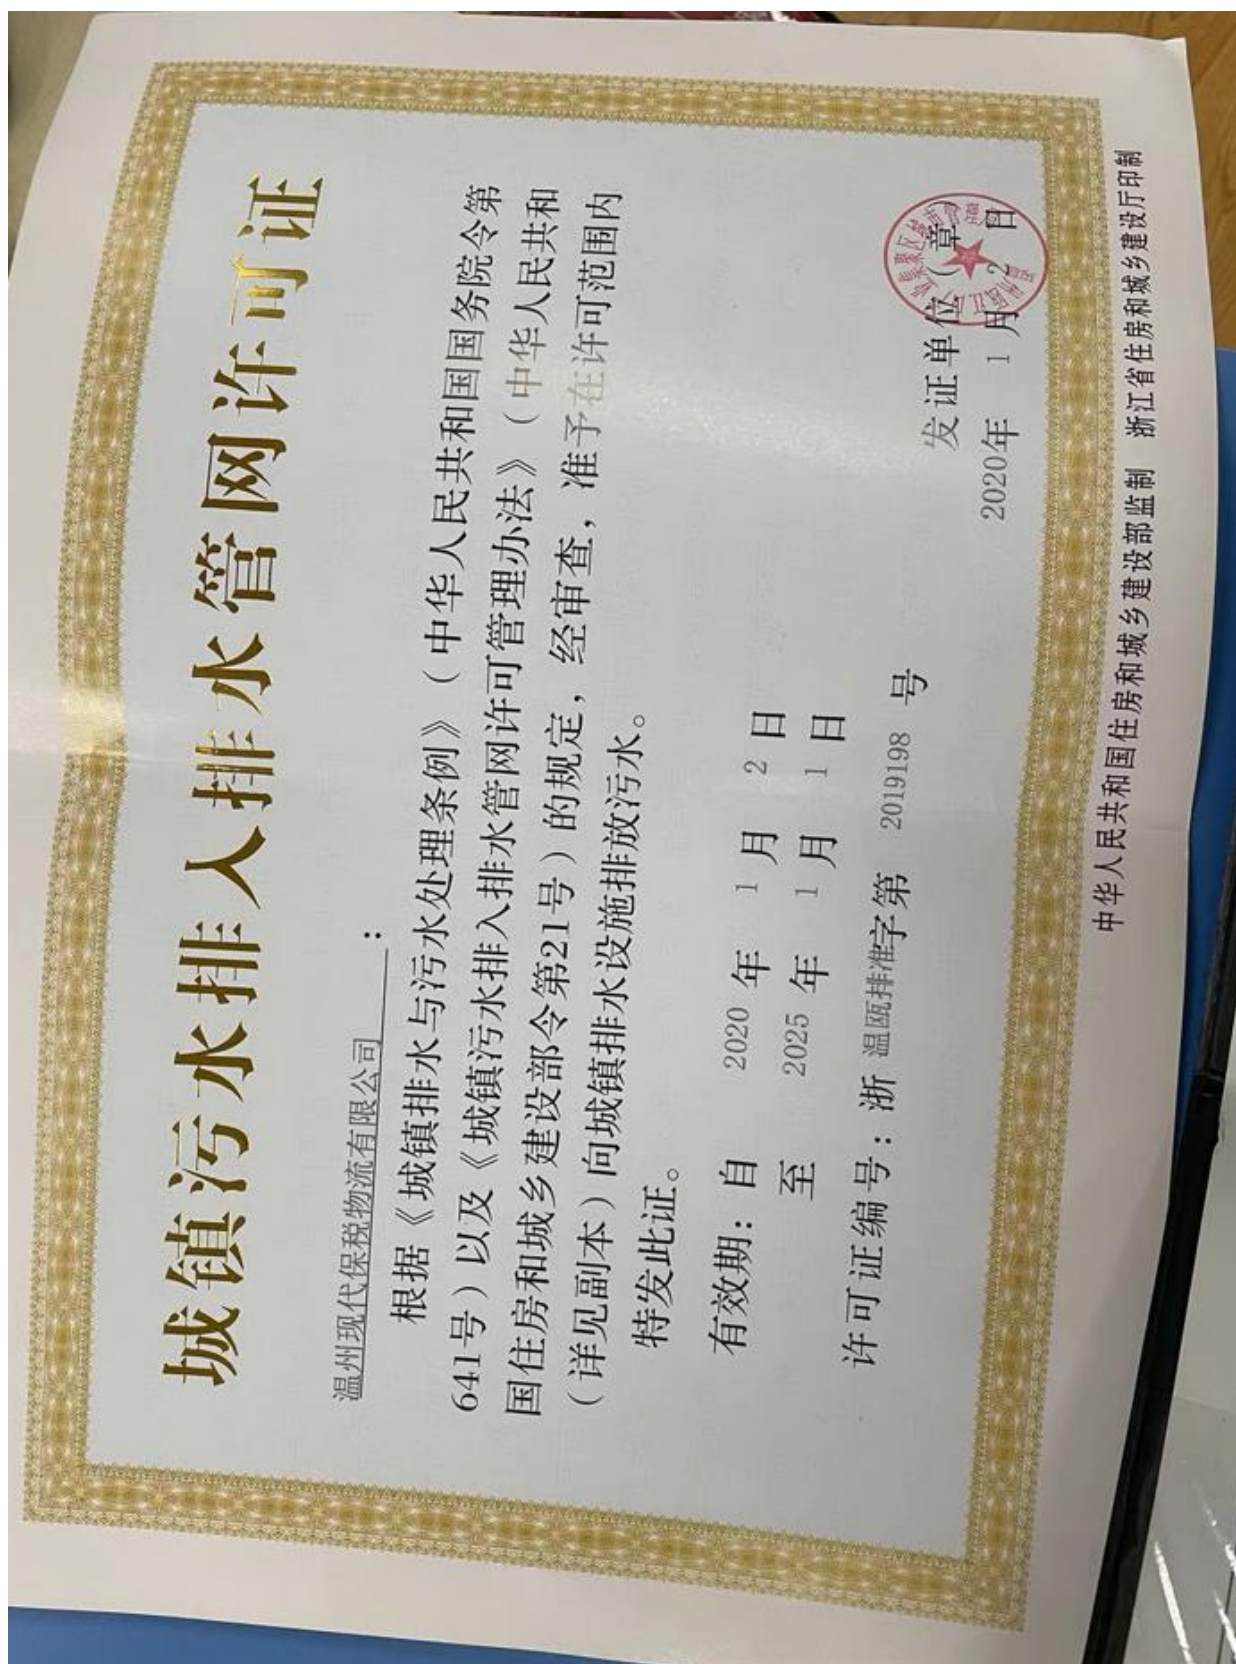 城镇污水排入排水管网许可证
温州现代保税物流有限公司：
根据《城镇排水与污水处理条例》（中华人民共和国国务院令第
641号）以及《城镇污水排入排水管网许可管理办法》（中华人民共和
国住房和城乡建设部令第21号）的规定，经审查，准予在许可范围内
（详见副本）向城镇排水设施排放污水。
特发此证。
有效期：自 2020 年 1 月 2 日
至 2025 年 1 月 1 日
许可证编号：浙 温瓯排准字第 2019198 号
发证单位（章）
2020年 1 月 2 日
中华人民共和国住房和城乡建设部监制 浙江省住房和城乡建设厅印制